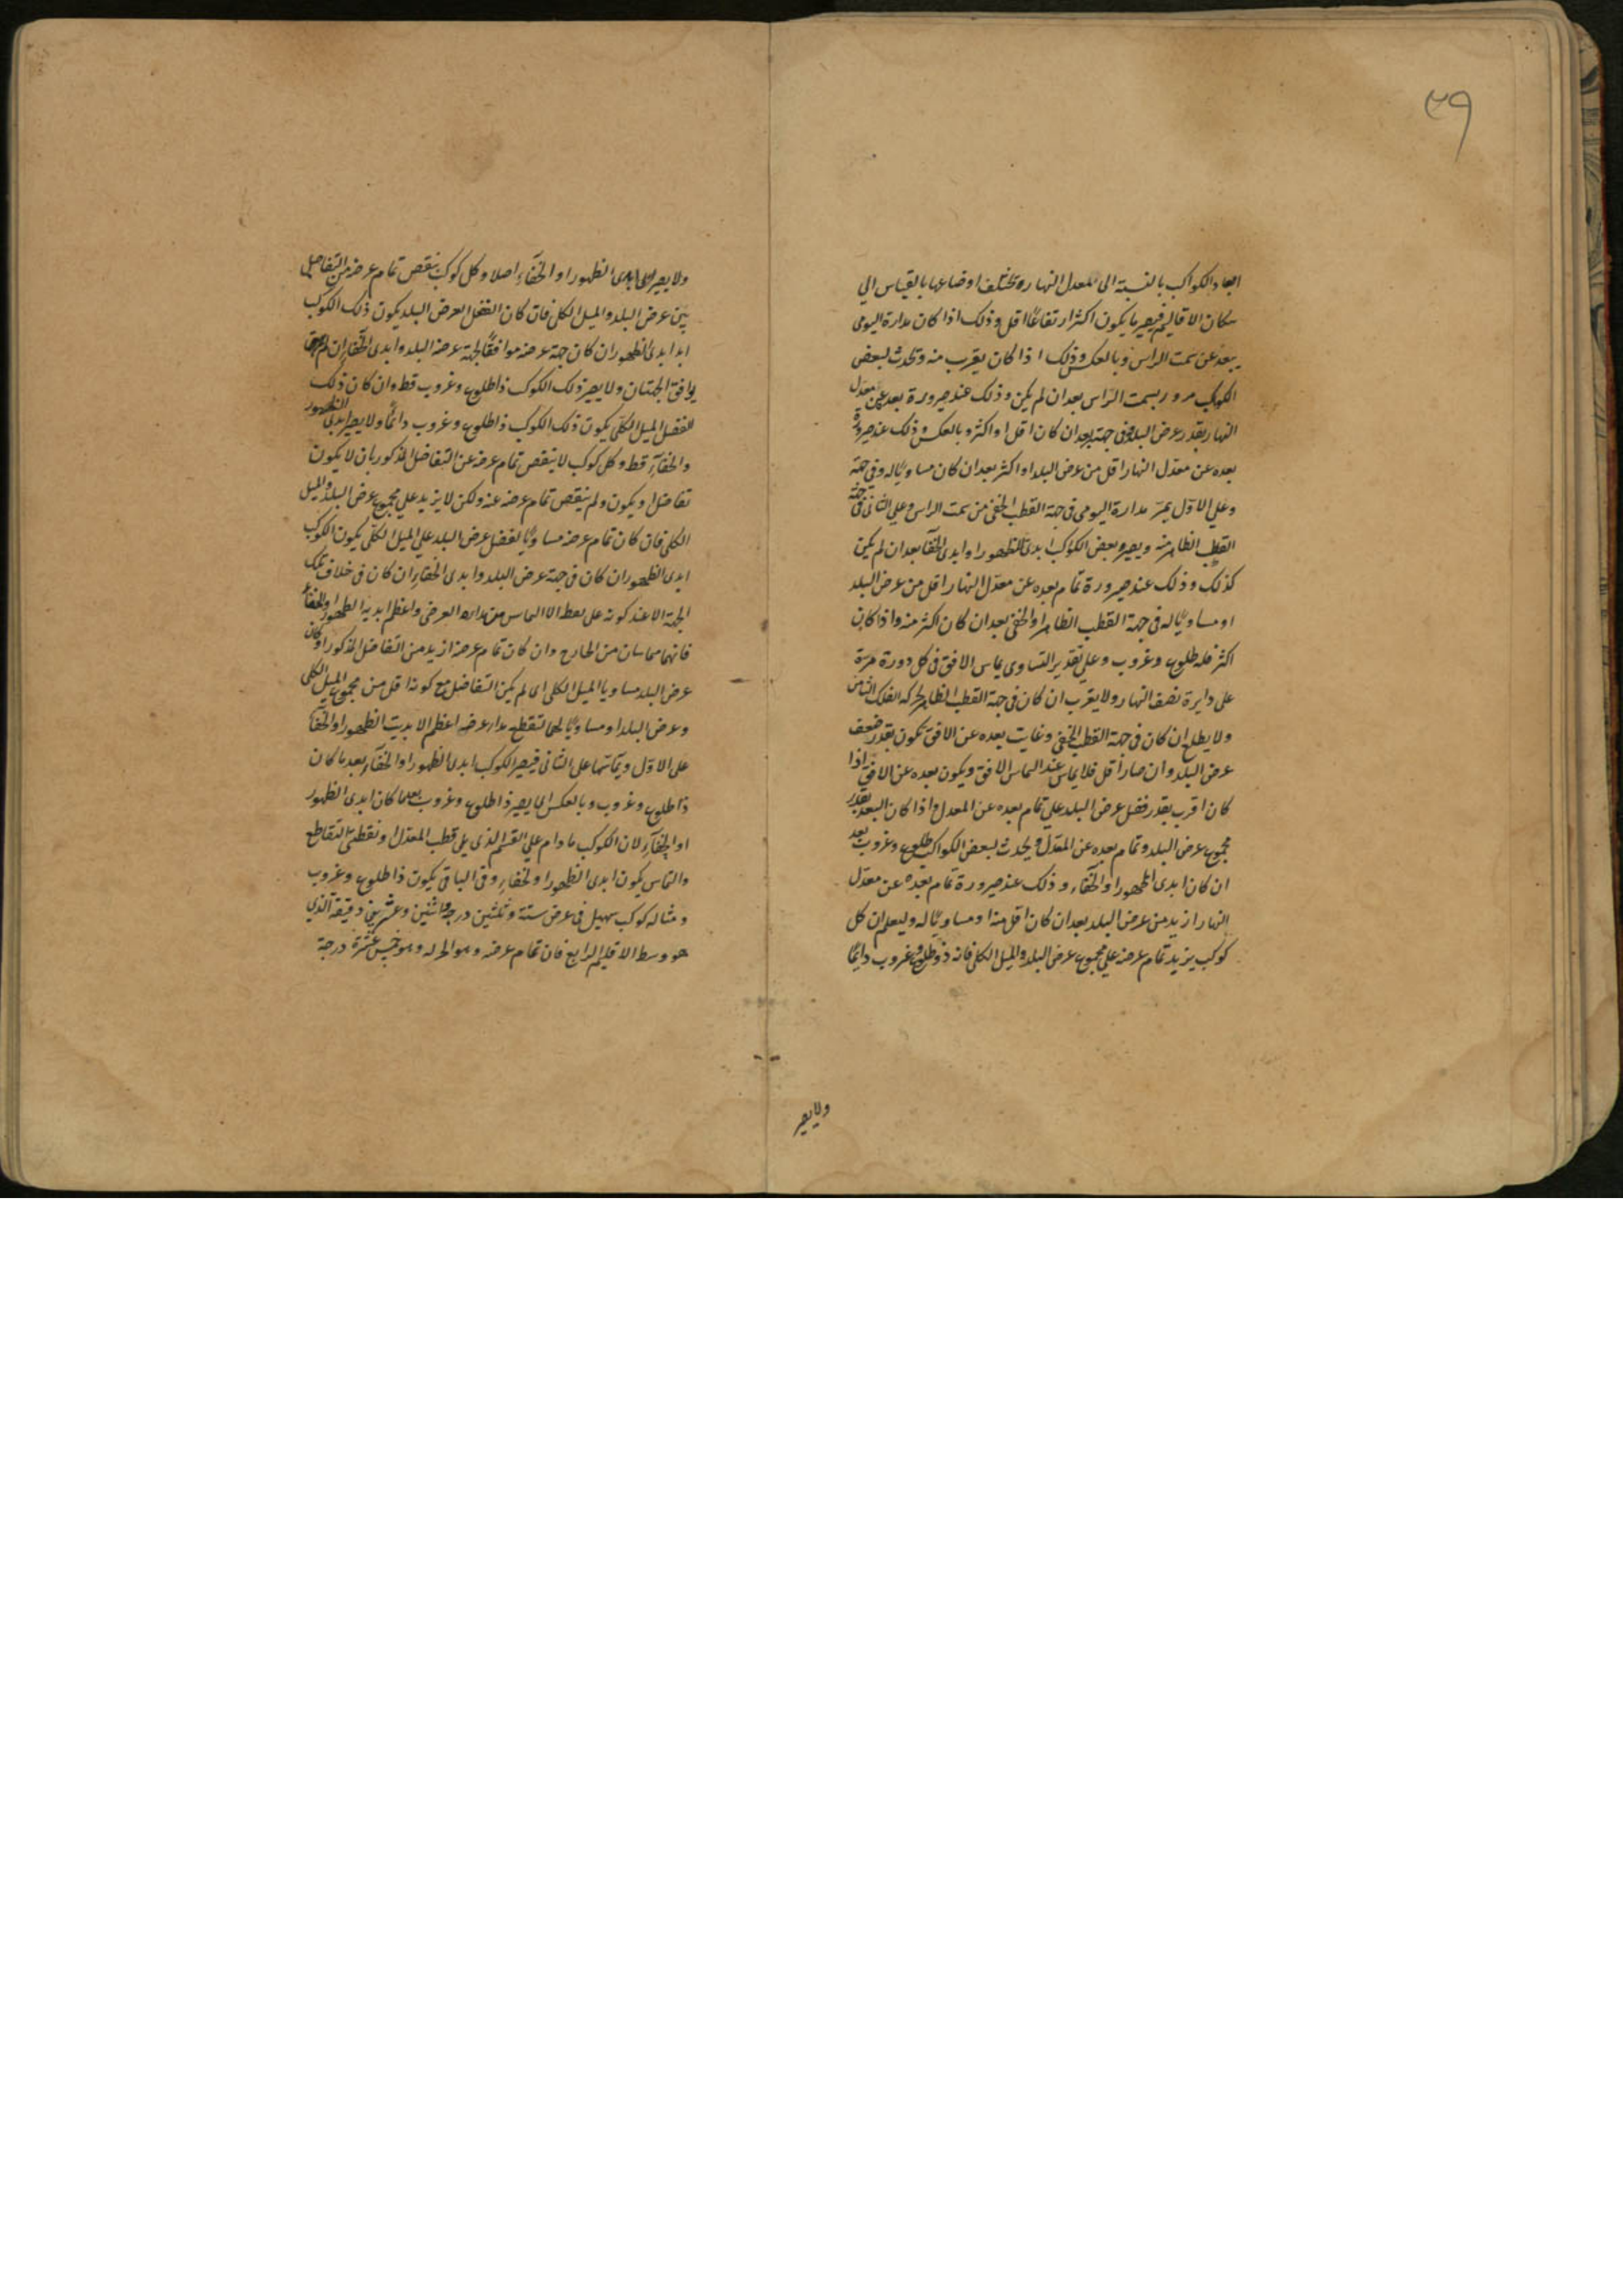 ٢٩
ابعاد الكواكب بالنسبة الى معدل النهار وتختلف اوضاعها بالقياس الي
سكان الاقاليم فيصير ما يكون اكثر ارتفاعًا اقل وذلك اذا كان مداره اليومى
يبعد عن سمت الراس وبالعكس وذلك اذا كان يقرب منه وتحدث لبعض
الكوكب مرور بسمت الراس بعد ان لم يكن وذلك عند صيرورة بعده عن معدل
النهار بقدر عرض البلد وفى جهته بعد ان كان اقل او اكثر وبالعكس وذلك عند صيرورة
بعده عن معدل النهار اقل من عرض البلد او اكثر بعد ان كان مساويًا له وفى جهته
وعلي الاول يمر مداره اليومى فى جهة القطب الخفى من سمت الراس وعلي الثانى فى جهة
القطب الظاهر منه ويصير بعض الكوكب ابدى الظهور او ابدى الخفآ بعد ان لم يكن
كذلك وذلك عند صيرورة تمام بعده عن معدل النهار اقل من عرض البلد
او مساويًا له فى جهة القطب الظاهر او الخفى بعد ان كان اكثر منه واذا كان
اكثر فله طلوع وغروب وعلي تقدير التساوى يماس الافق فى كل دورة مرة
على دايرة نصف النهار ولا يغرب ان كان فى جهة القطب الظاهر لحركه الفلك الثامن
ولا يطلع ان كان فى جهة القطب الخفى وغايت بعده عن الافق يكون بقدر ضعف
عرض البلد وان صار اقل فلا يماس عند التماس الافق ويكون بعده عن الافق اذا
كان اقرب بقدر فضل عرض البلد علي تمام بعده عن المعدل واذا كان البعد بقدر
مجموع عرض البلد وتمام بعده عن المعدل ويحدث لبعض الكواكب طلوع وغروب بعد
ان كان ابدى الظهور او الخفآء وذلك عند صيرورة تمام بعده عن معدل
النهار ازيد من عرض البلد بعد ان كان اقل منه او مساويًا له وليعلم ان كل
كوكب يزيد تمام عرضه علي مجموع عرض البلد والميل الكلى فانه ذو طلوع وغروب دايمًا
ولا يصير
ولا يصير ابدى الظهور او الخفآء اصلا وكل كوكب ينقص تمام عرضه من التفاضل
بين عرض البلد والميل الكلى فان كان الفضل لعرض البلد يكون ذلك الكوكب
ابدا ابدى الظهور ان كان جهة عرضه موافقًا لجهة عرض البلد وابدى الخفاء ان لم
يوافق الجهتان ولا يصير ذلك الكوكب ذا طلوع وغروب قط وان كان ذلك
الفضل للميل الكلى يكون ذلك الكوكب ذا طلوع وغروب دائمًا ولا يصير ابدى الظهور
والخفآء قط وكل كوكب لا ينقص تمام عرضه عن التفاضل المذكور بان لا يكون
تفاضل او يكون ولم ينقص تمام عرضه عنه ولكن لا يزيد علي مجموع عرض البلد والميل
الكلى فان كان تمام عرضه مساويًا لفضل عرض البلد علي الميل الكلى يكون الكوكب
ابدى الظهور ان كان فى جهة عرض البلد وابدى الخفاء ان كان فى خلاف تلك
الجهة الا عند كونه على نقطة التماس من مداره العرضى واعظم ابدية الظهور او الخفاء
فانهما متماسان من الخارج وان كان تمام عرضه ازيد من التفاضل المذكور او كان
عرض البلد مساويا للميل الكلى اى لم يكن التفاضل مع كونه اقل من مجموع الميل الكلى
وعرض البلد او مساويًا لهما لتقطع مدار عرضه اعظم الابديت الظهور او الخفآ
على الاول ويماسها على الثانى فيصير الكوكب ابدى الظهور او الخفآء بعد ما كان
ذا طلوع وغروب وبالعكس اى يصير ذا طلوع وغروب بعد ما كان ابدى الظهور
او الخفآء لان الكوكب ما دام علي القسم الذى يلى قطب المعدل او نقطتى التقاطع
والتماس يكون ابدى الظهور او الخفاء وفى الباقى يكون ذا طلوع وغروب
ومثاله كوكب سهيل فى عرض ستة وثلثين درجة واثنين وعشرين دقيقة الذي
هو وسط الاقليم الرابع فان تمام عرضه وهو الحر له وهو خمس عشرة درجة